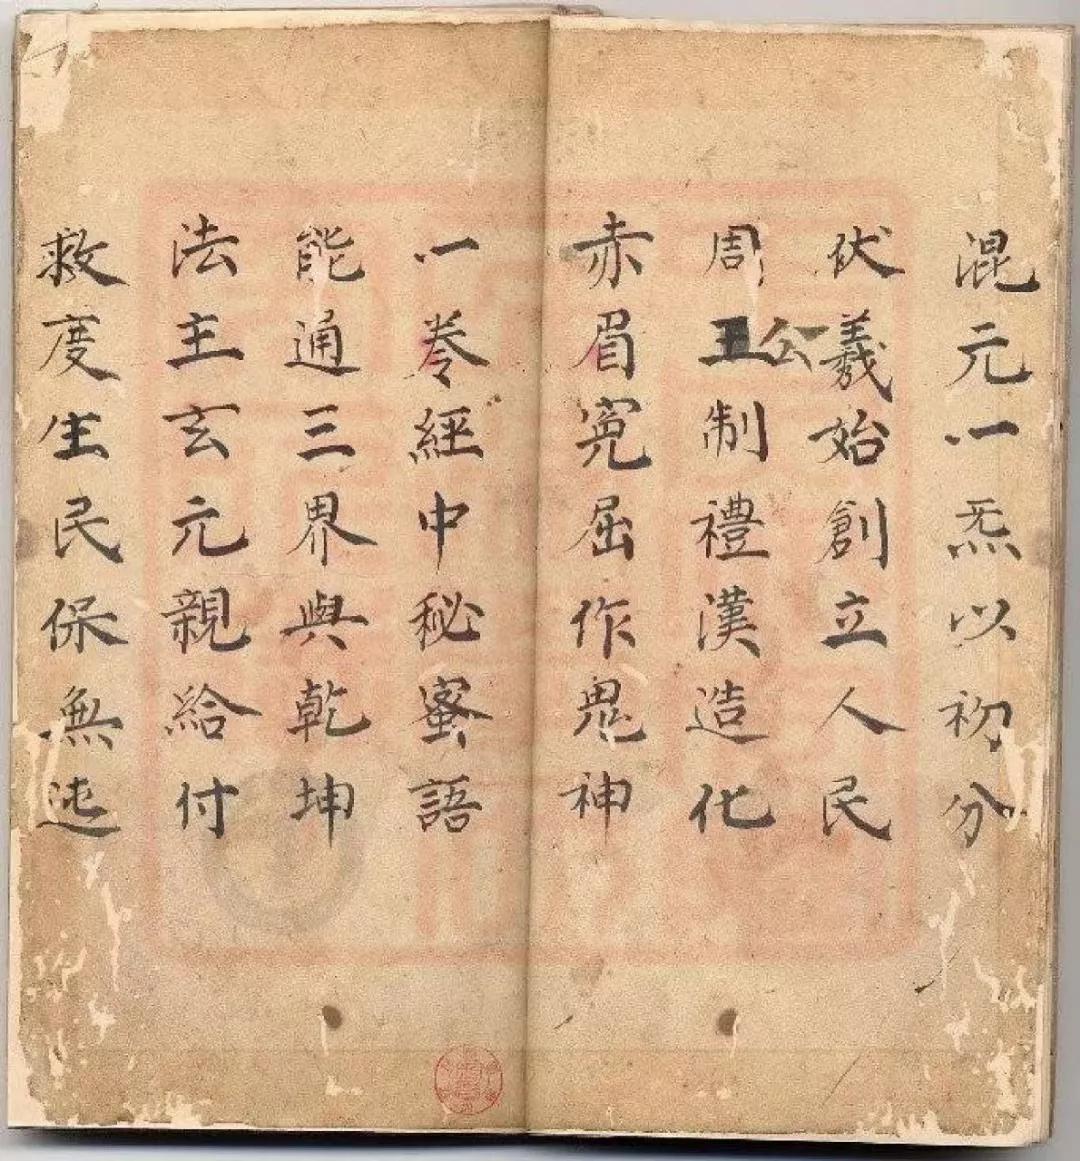 混元一炁以初分
伏羲始創立人民
周王公制禮漢造化
赤眉寃屈作鬼神
一卷經中秘蜜語
能通三界與乾坤
法主玄元親給付
救度生民保無迍